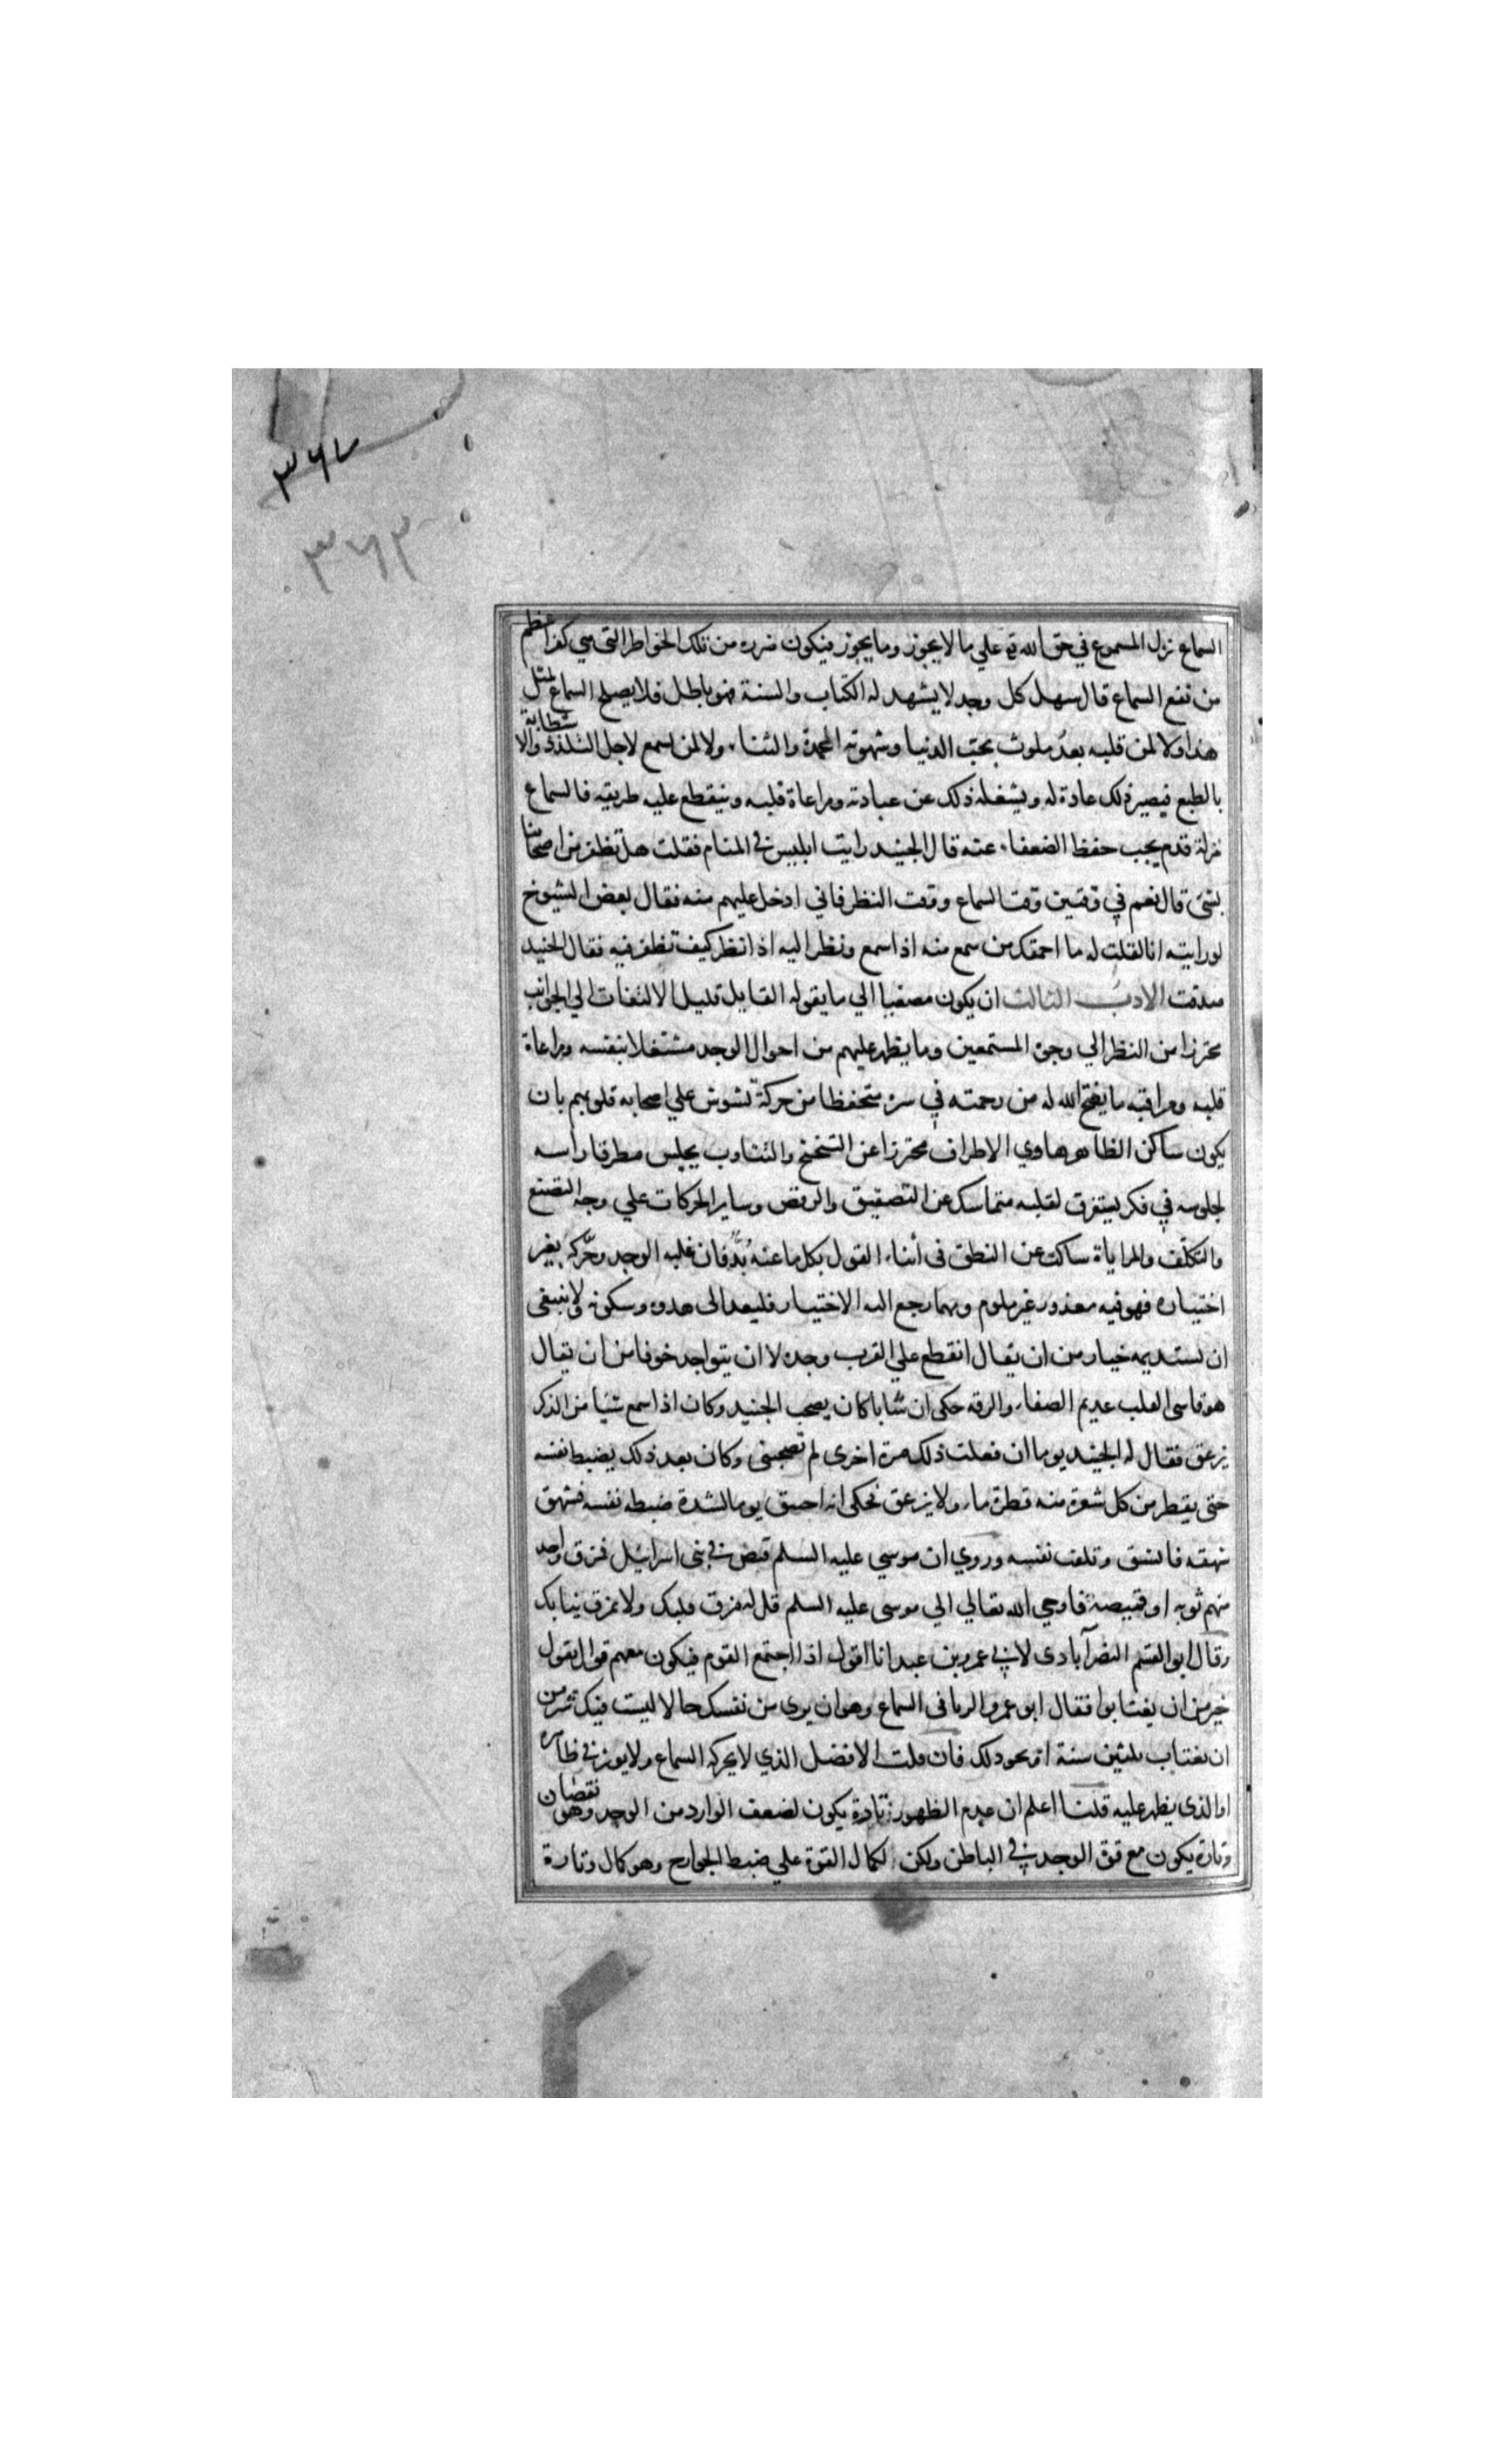 ٣٦٧
٣٦٣
السماع نزل المسموع في حق الله تع علي ما لا يجوز وما يجوز فيكون ضرره من تلك الخواطر التي هي كفر اعظم
من نفع السماع قال سهل كل وجد لا يشهد له الكتاب والسنة فهو باطل فلا يصلح السماع لمثل
هذا ولا لمن قلبه بعد ملوث بحب الدنيا وشهوته المحمدة والثناء ولا لمن يسمع لاجل التلذذ والاستطابة
بالطبع فيصير ذلك عادة له ويشغله ذلك عن عبادته ومراعاة قلبه وينقطع عليه طريقه فالسماع
مزلة قدم يجب حفظ الضعفاء عنه قال الجنيد رايت ابليس في المنام فقلت هل تظفر من اصحابنا
بشئ قال نعم في وقتين وقت السماع ووقت النظر فاني ادخل عليهم منه فقال بعض الشيوخ
لو رايته انا لقلت له ما احمقك من سمع منه اذا سمع ونظر اليه اذا نظر كيف تظفر فيه فقال الجنيد
صدقت الادب الثالث ان يكون مصغيا الي ما يقوله القايل قليل الالتفات الي الجوانب
محترزا من النظر الي وجوه المستمعين وما يظهر عليهم من احوال الوجد مشتغلا بنفسه ومراعاة
قلبه ومراقبه ما يفتح الله له من رحمته في سره متحفظا من حركة تشوش علي اصحابه قلوبهم بان
يكون ساكن الظاهر هاوي الاطراف محترزا عن التنحنح والتثاوب يجلس مطرقا راسه
لجلوسه في فكر يستغرق لقلبه متماسك عن التصفيق والرقص وساير الحركات علي وجه التصنع
والتكلف والمراياة ساكت عن النطق في أثناء القول بكل ما عنه بُدّ فان غلبه الوجد وحرّكه بغير
اختياره فهو فيه معذور غير ملوم ومهما رجع اليه الاختيار فليعد الى هدوه وسكونه ولا ينبغي
ان يستديمه خيار من ان يقال انقطع علي القرب وجده لا ان يتواجد خوفا من ان يقال
هو قاسى القلب عديم الصفاء والرقة حكى ان شابا كان يصحب الجنيد وكان اذا سمع شيا من الذكر
يزعق فقال له الجنيد يوما ان فعلت ذلك مرة اخرى لم تصحبنى وكان بعد ذلك يضبط نفسه
حتى يقطر من كل شعرة منه قطرة ماء ولا يزعق فحكى انه يوما لشدة ضبطه نفسه فشهق
شهقه فانشق وتلفت نفسه وروي ان موسى عليه السلم قص في بنى اسرائيل فمزق واحد
منهم ثوبه او قميصه فاوحي الله تعالي الي موسى عليه السلم قل له مزق قلبك ولا تمزق ثيابك
وقال ابو القسم النصرآبادى لابي عمرو بن عبيد انا اقول اذا اجتمع القوم فيكون معهم قوال يقول
خير من ان يغتابوا فقال ابو عمرو الريا في السماع وهو ان يرى من نفسك حالا ليست فيك شر من
ان نغتاب ثلثين سنة او نحو ذلك فان قلت الافضل الذي لا يحركه السماع ولا يوثر في ظاهره
او الذى يظهر عليه قلنا اعلم ان عدم الظهور تارة يكون لضعف الوارد من الوجد وهو نقصان
وتارة يكون مع قوة الوجد في الباطن ولكن لكمال القوة علي ضبط الجوارح وهو كمال وتارة